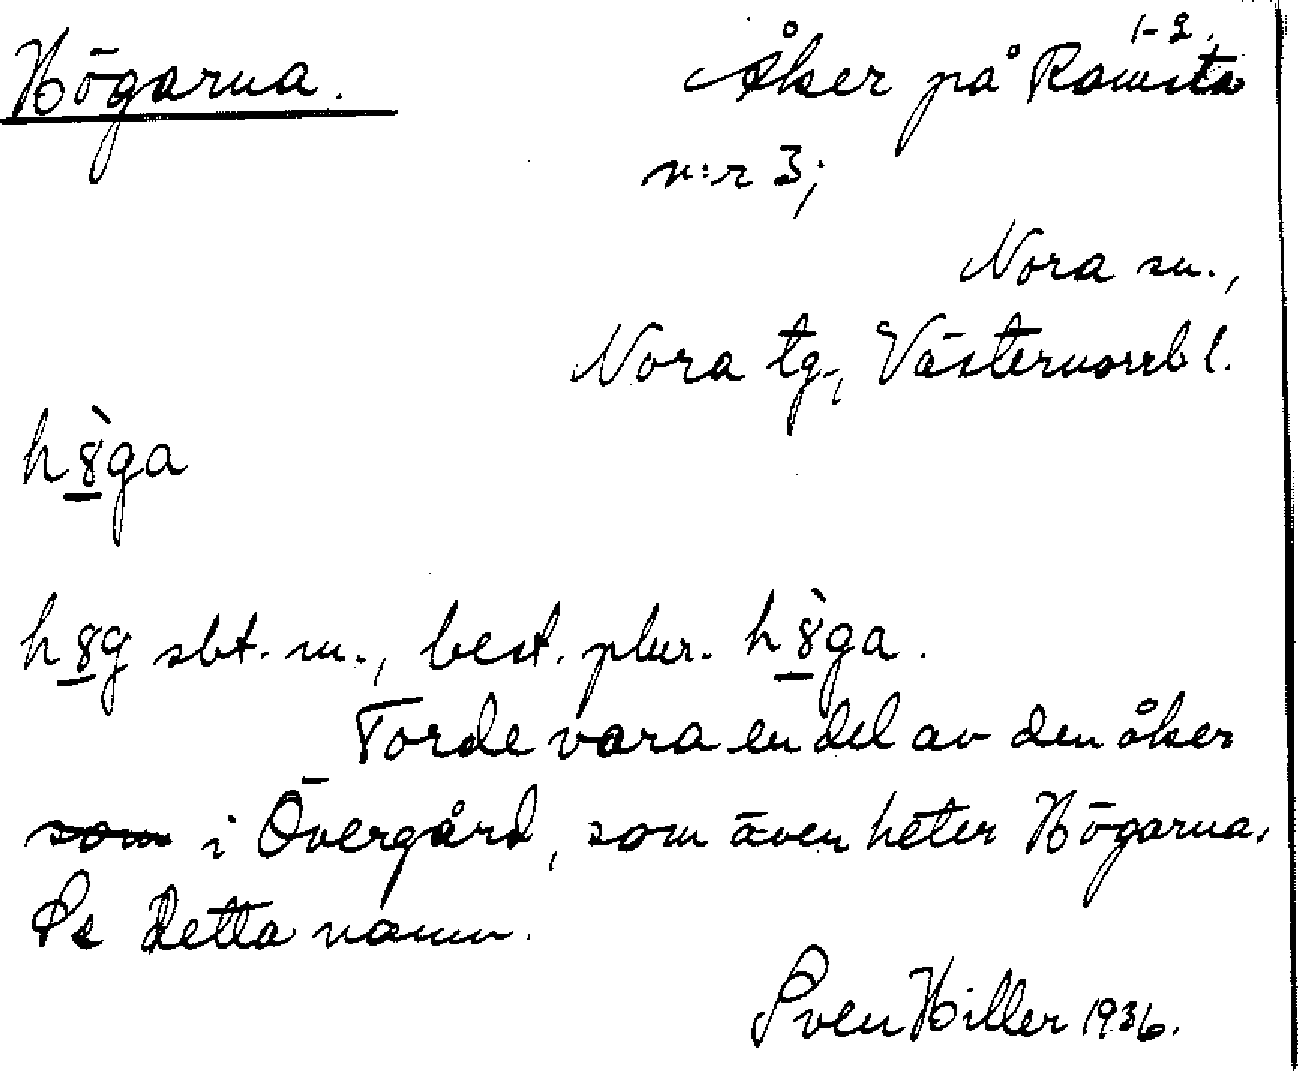 1-2.
Högarna. Åker på Ramsta
n:r 3;
Nora sn.,
Nora tg., Västernorrl l.
h8̀ga
h8g sbt. m., best. plur. h8̀ga.
Torde vara en del av den åker
i Övergård, som även heter Högarna.
Se detta namn.
Sven Hiller 1936.